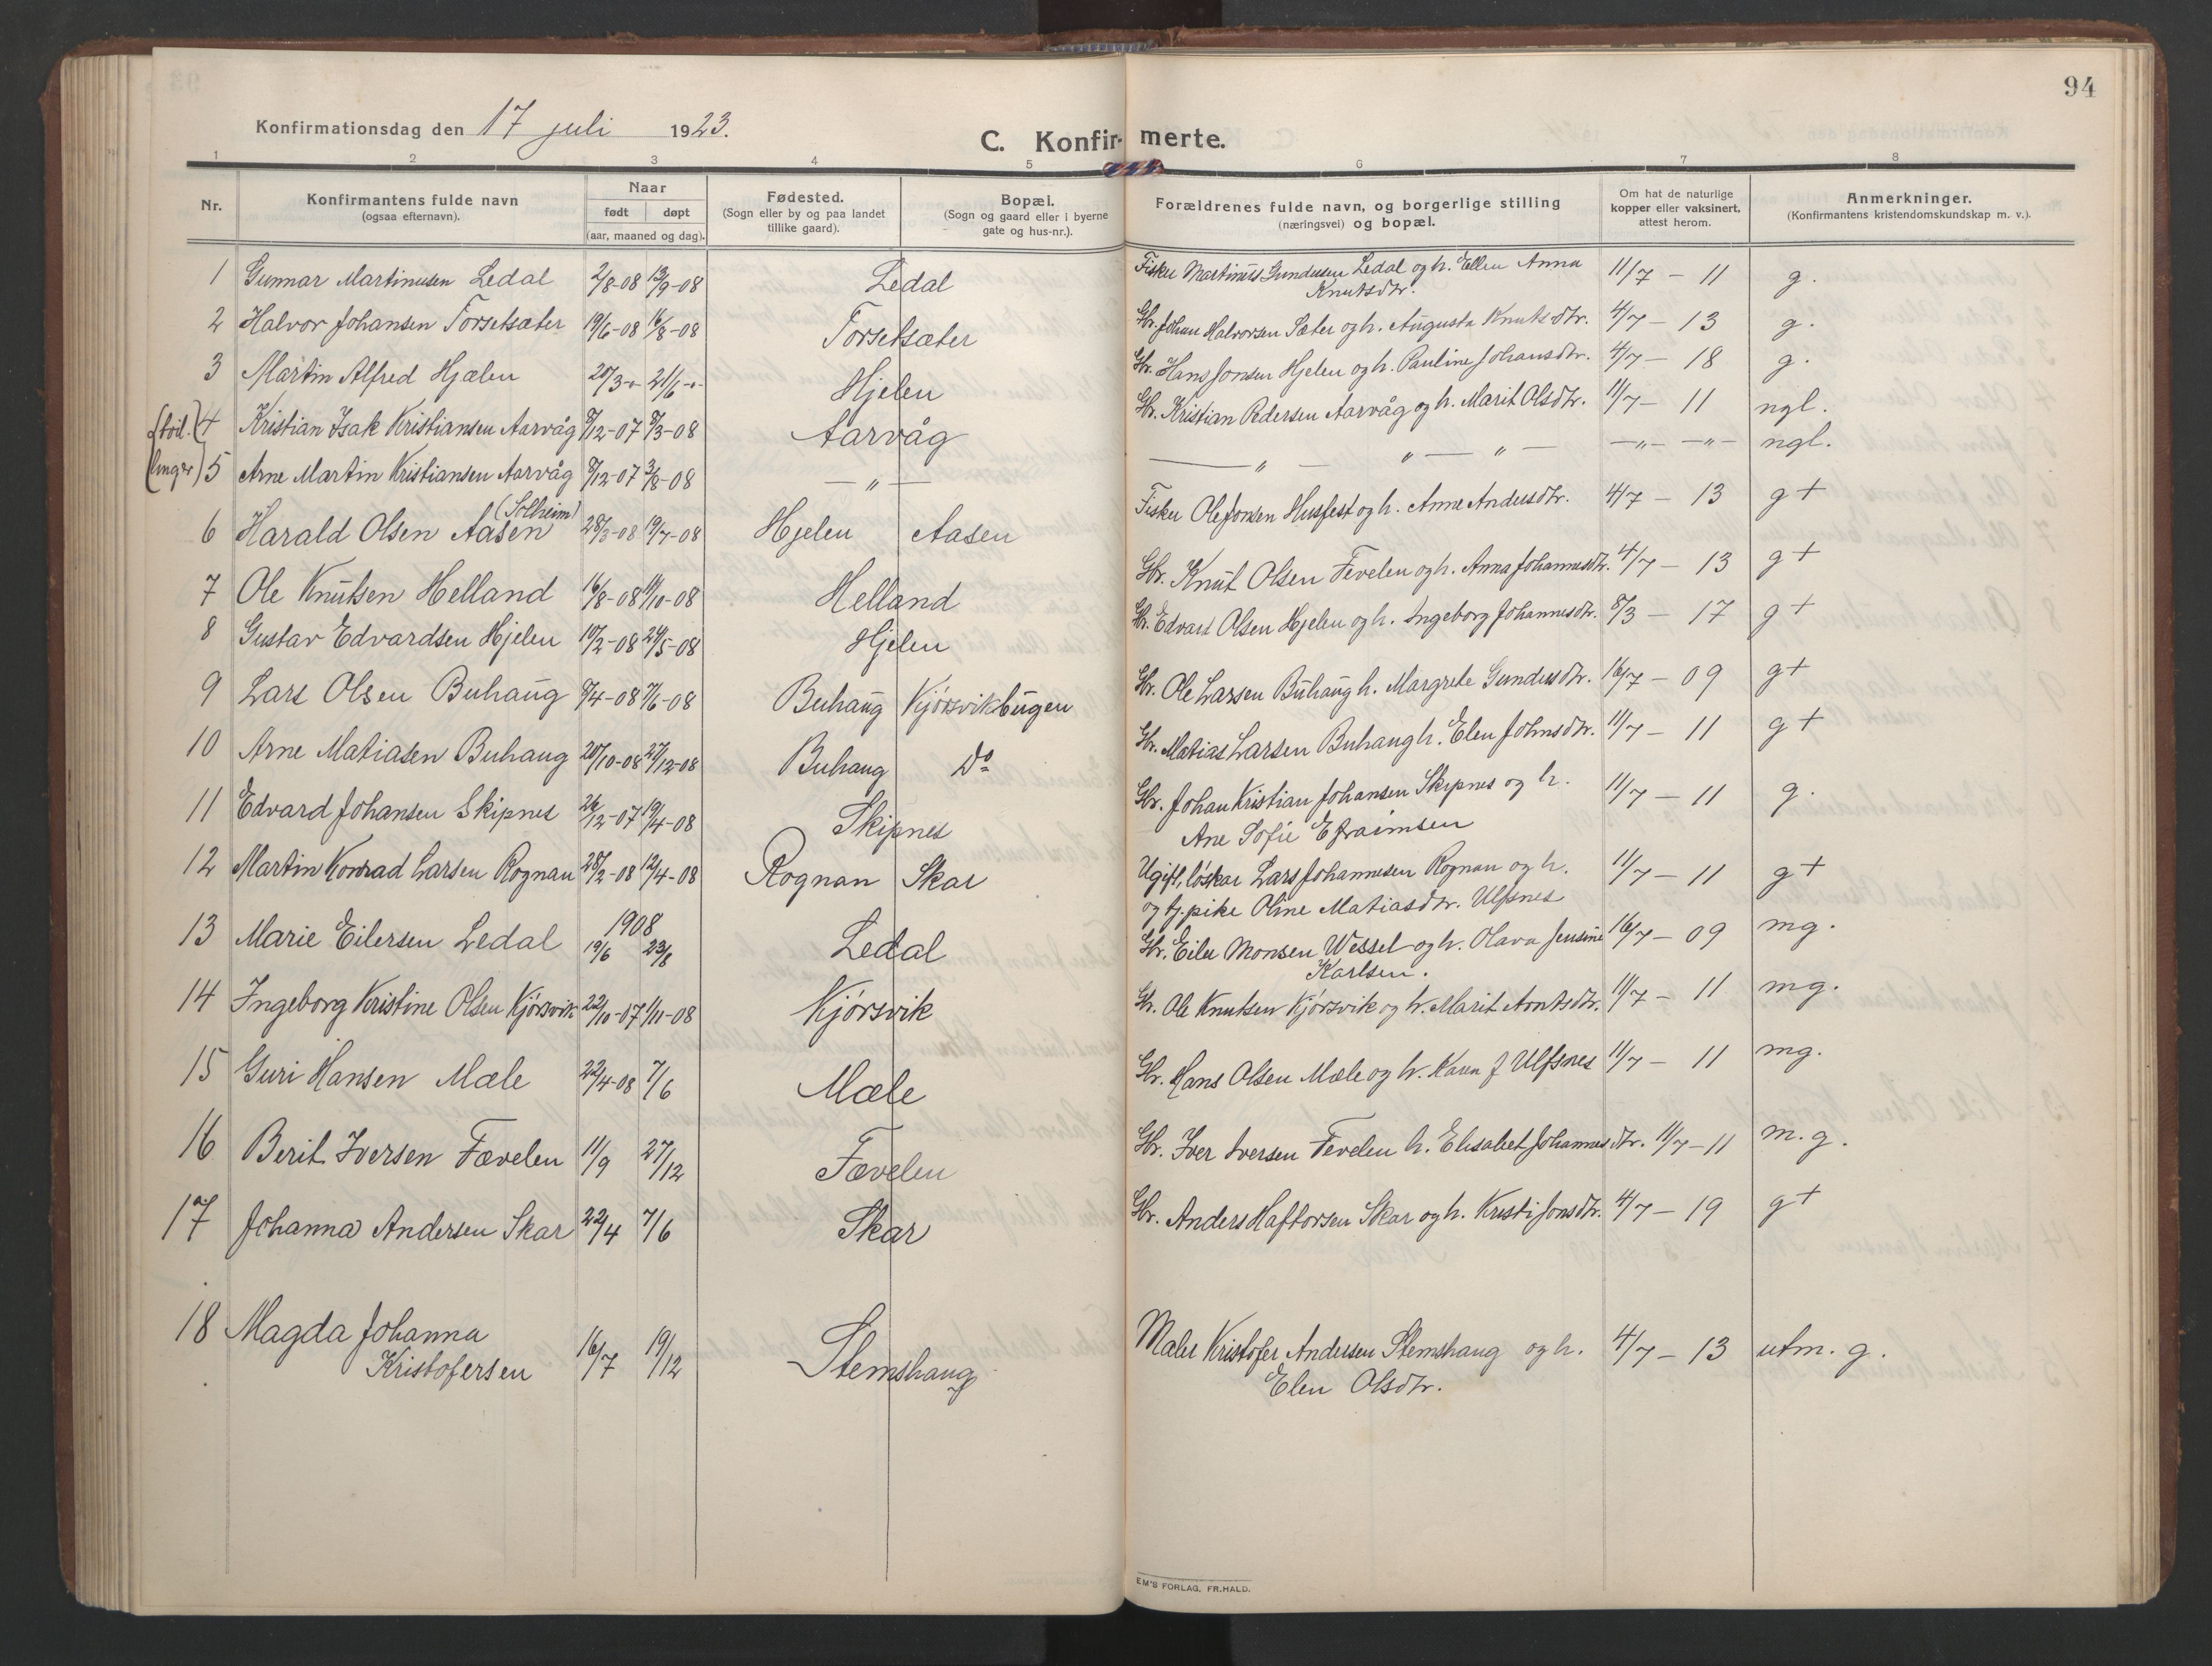 94
Konfirmationsdag den 17 juli 1923.
C. Konfir- merte.
1 2 3 4 5 6 7 8
Nr.
Konfirmantens fulde navn
(ogsaa efternavn).
Naar
født døpt
(aar, maaned og dag).
Fødested.
(Sogn eller by og paa landet
tillike gaard).
Bopæl.
(Sogn og gaard eller i byerne
gate og hus-nr.).
Forældrenes fulde navn, og borgerlige stilling
(næringsvei) og bopæl.
Om hat de naturlige
kopper eller vaksinert,
attest herom.
Anmerkninger.
(Konfirmantens kristendomskundskap m. v.).
1 Gunnar Martinusen Ledal 2/8-08 13/9-08 Ledal Fisker Martinus Gundersen Ledal og h. Ellen Anna 11/7 - 11 g.
Knutsdtr.
2 Halvor Johansen Torsetsæter 19/6-08 16/8-08 Torsetsæter Gbr. Johan Halvorsen Sæter og h. Augusta Knutsdtr. 4/7 - 13 g.
3 Martin Alfred Hjælen 20/3-"- 21/6-"- Hjelen Gbr. Hans Jonsen Hjelen og h. Pauline Johansdtr. 4/7 - 18 g.
(tvil.) 4 Kristian Isak Kristiansen Aarvåg 8/12-07 8/3-08 Aarvåg Gbr. Kristian Pedersen Aarvåg og h. Marit Olsdtr. 11/7 - 11 ngl.
(linger) 5 Arne Martin Kristiansen Aarvåg 8/12-07 3/8-08 - " - - " - " - " - - " - - " - ngl.
(Solheim)
6 Harald Olsen Aasen 28/3-08 19/7-08 Hjelen Aasen Fisker Ole Jonsen Husfest og h. Anne Andersdtr. 4/7 - 13 g+
7 Ole Knutsen Helland 16/8-08 11/10-08 Helland Gbr. Knut Olsen Fevelen og h. Anna Johannesdtr. 4/7 - 13 g+
8 Gustav Edvardsen Hjelen 10/2-08 24/5-08 Hjelen Gbr. Edvart Olsen Hjelen og h. Ingeborg Johannesdtr. 8/3 - 17 g+
9 Lars Olsen Buhaug 8/4-08 7/6-08 Buhaug Kjørsvikbugen Gbr. Ole Larsen Buhaug h. Margrete Gundersdtr. 16/7 - 09 g+
10 Arne Matiasen Buhaug 20/10-08 27/12-08 Buhaug Do Gbr. Matias Larsen Buhaug h. Elen Johnsdtr. 11/7 - 11 g+
11 Edvard Johansen Skipnes 26/12-07 19/4-08 Skipnes Gbr. Johan Kristian Johansen Skipnes og h. 11/7 - 11 g.
Ane Sofie Efraimsen
12 Martin Konrad Larsen Rognan 28/2-08 12/4-08 Rognan Skar Ugift, løskar Lars Johannesen Rognan og h. 11/7 - 11 g+
og tj.pike Oline Matiasdtr. Ulfsnes
13 Marie Eilersen Ledal 1908 19/6 23/8 Ledal Gbr. Eiler Monsen Wessel og h. Olava Jensine 16/7 - 09 mg.
Karlsen.
14 Ingeborg Kristine Olsen Kjørsvik 22/10-07 1/11-08 Kjørsvik Gbr. Ole Knutsen Kjørsvik og h. Marit Arntsdtr. 11/7 - 11 mg.
15 Guri Hansen Mæle 22/4-08 7/6 Mæle Gbr. Hans Olsen Mæle og h. Karen J Ulfsnes 11/7 - 11 mg.
16 Berit Iversen Fævelen 11/9 27/12 Fævelen Gbr. Iver Iversen Fevelen h. Elisabet Johannesdtr. 11/7 - 11 m.g.
17 Johanna Andersen Skar 22/4 7/6 Skar Gbr. Anders Haftorsen Skar og h. Kristi Jonsdtr. 4/7 - 19 g+
18 Magda Johanna
Kristofersen 16/7 19/12 Stemshaug Maler Kristofer Andersen Stemshaug og h. 4/7 - 13 utm. g.
Elen Olsdtr.
EM'S FORLAG, FR.HALD.